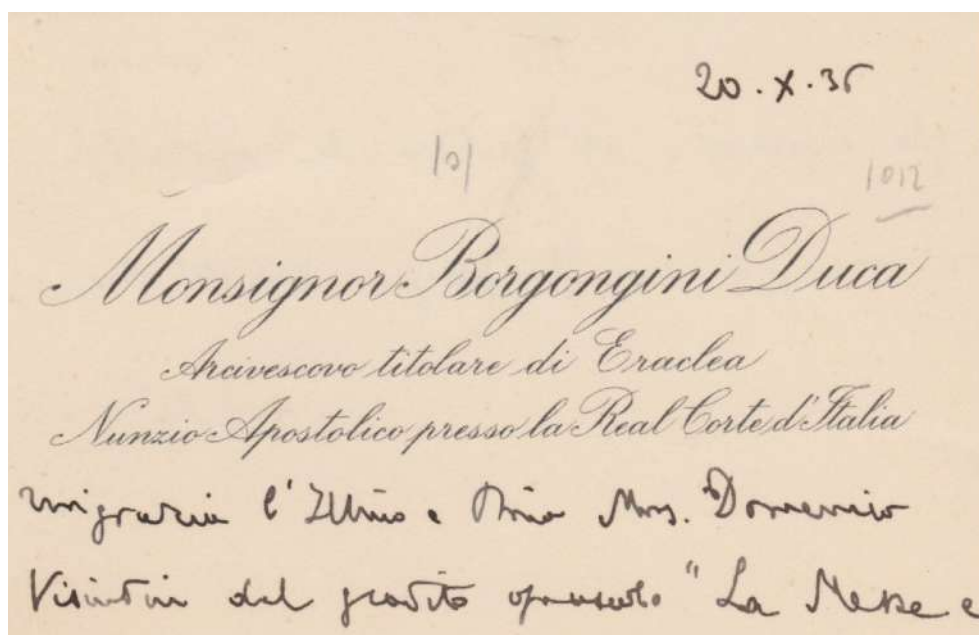 20.X.35
101
1012
Monsignor Borgongini Duca
Arcivescovo titolare di Eraclea
Nunzio Apostolico presso la Real Corte d'Italia
ringrazia l'Illmo e Rmo Mons. Domenico
Visintin del gradito opuscolo "La Messe e